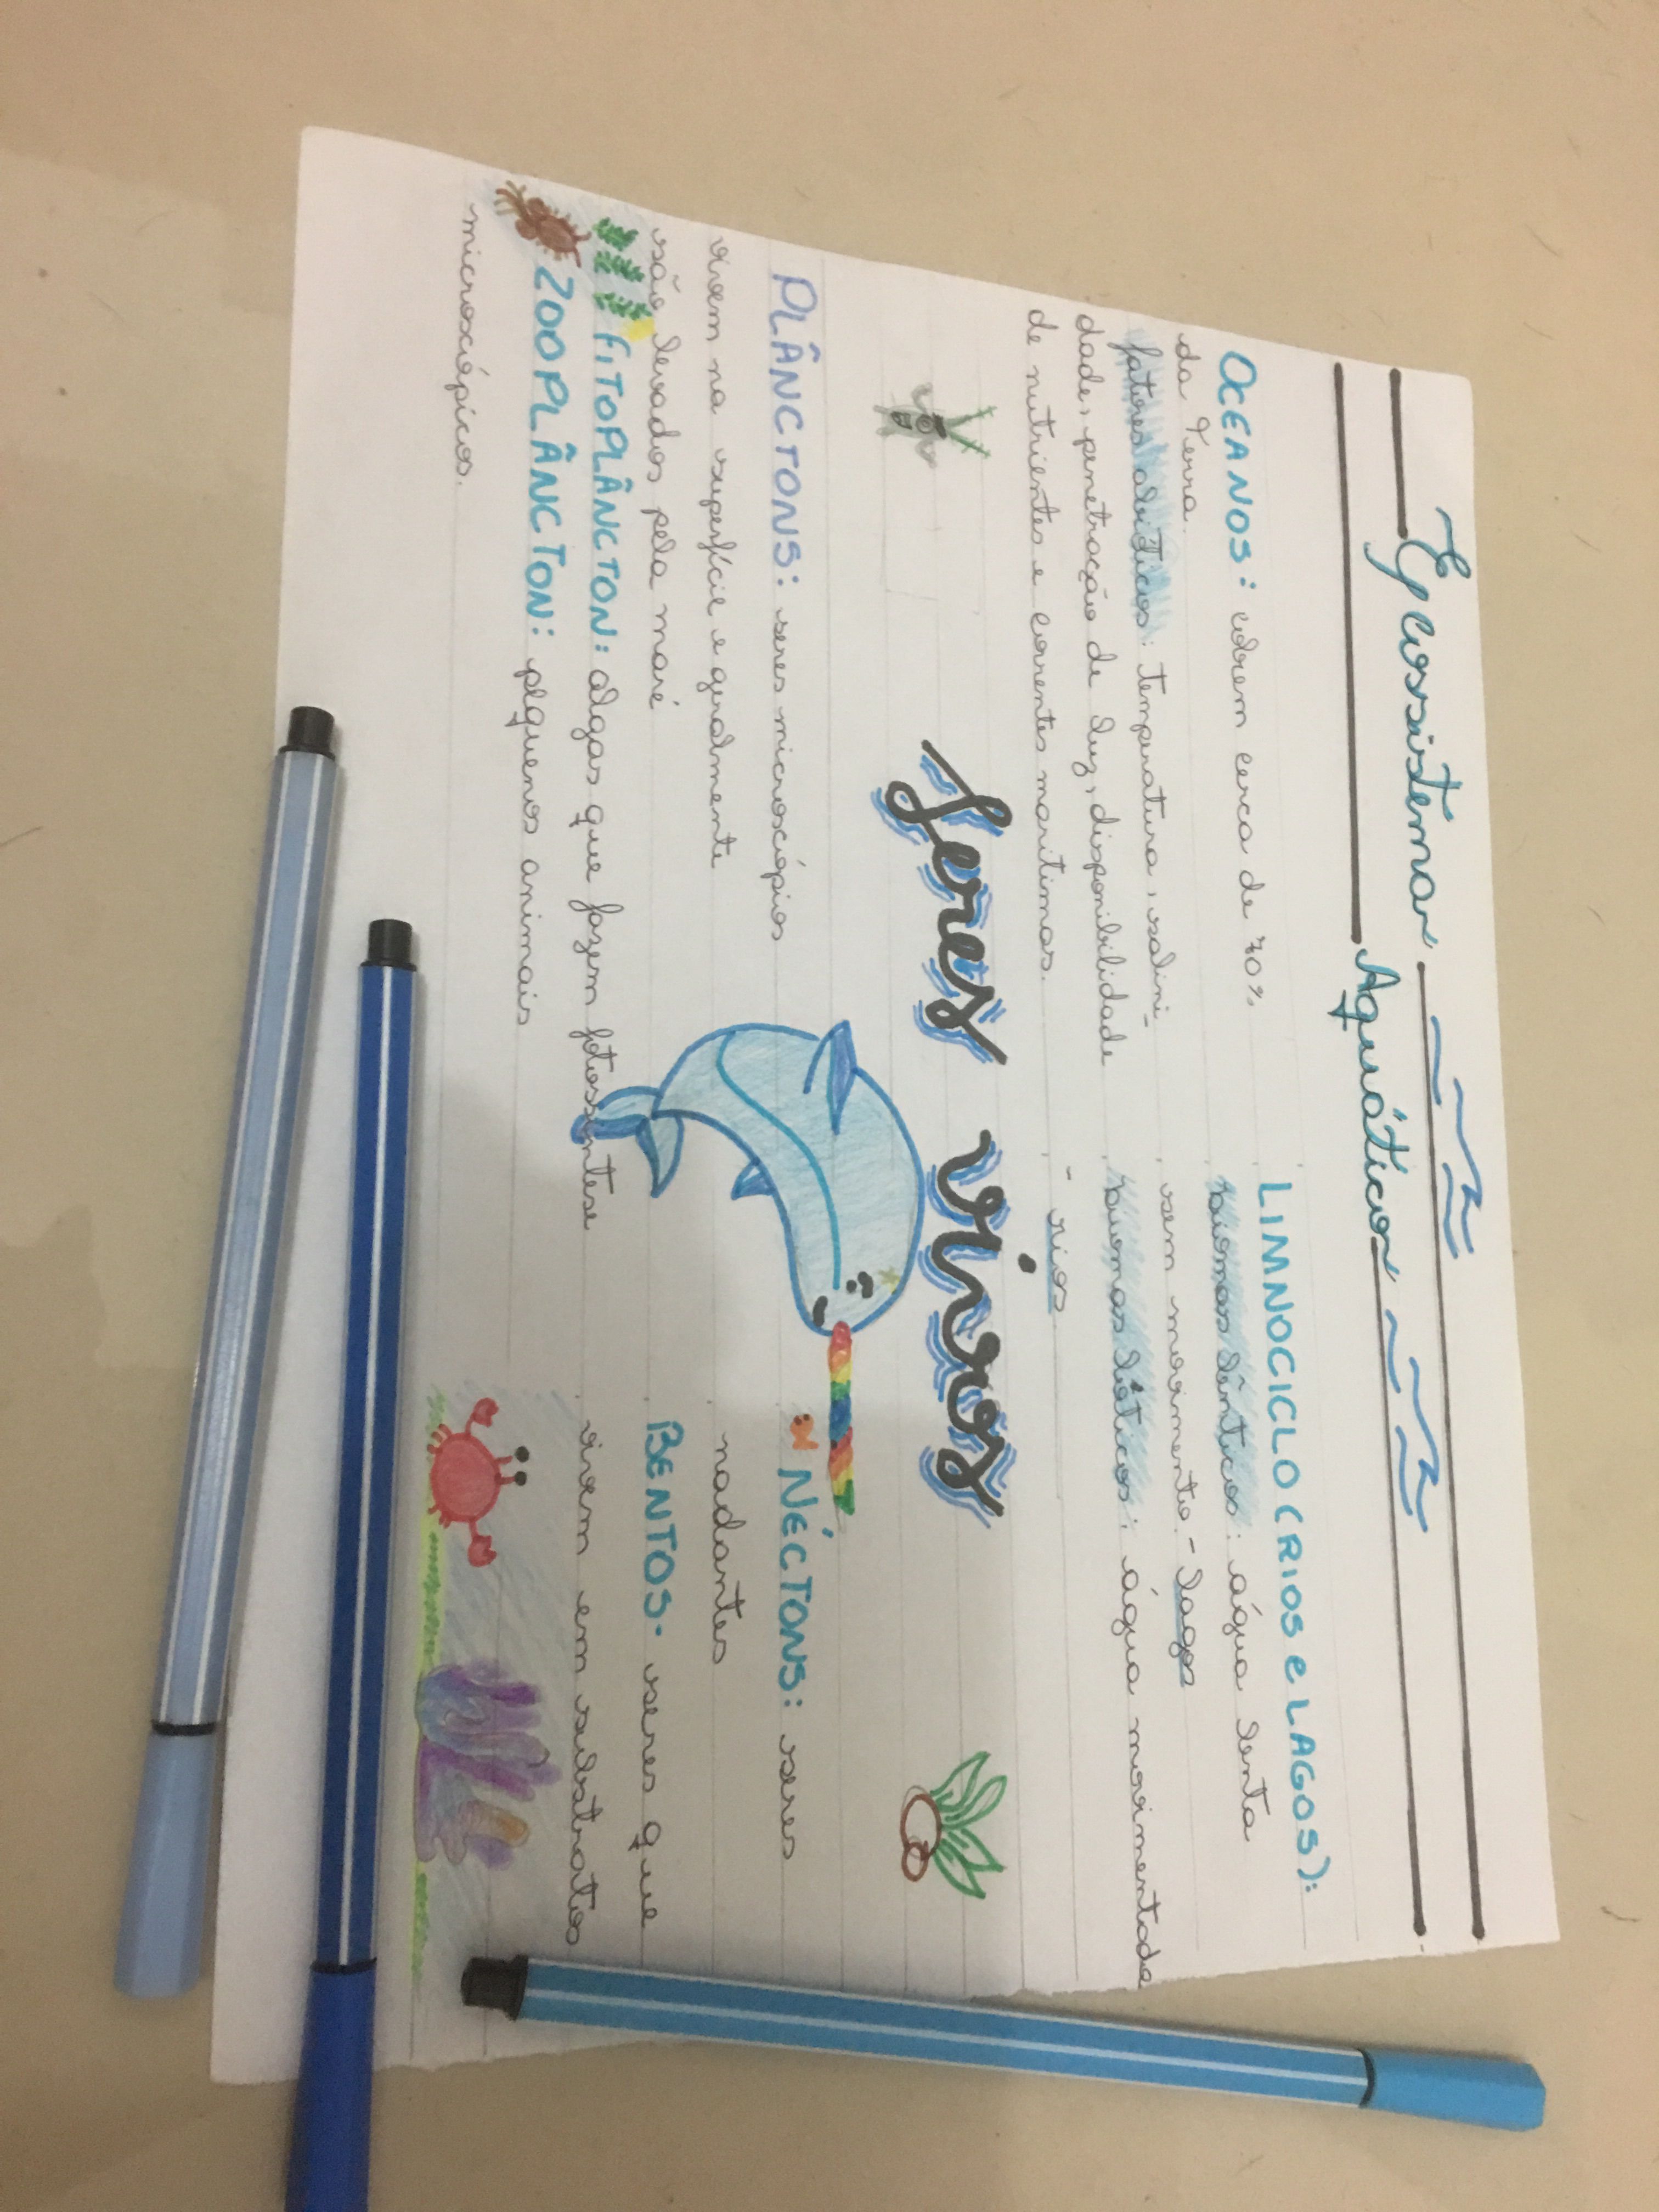 Ecossistemas
Aquáticos
OCEANOS: cobrem cerca de 70%
da Terra.
fatores abióticos: temperatura, salini-
dade, penetração de luz, disponibilidade
de nutrientes e correntes maritimas.
LIMNOCICLO (RIOS e LAGOS):
biomas lênticos: água lenta
sem movimento - lagos
biomas lóticos: água movimentada
- rios
Seres vivos
PLÂNCTONS: seres microscópios
vivem na superfície e geralmente
são levados pela maré
FITOPLÂNCTON: algas que fazem fotossíntese
ZOOPLÂNCTON: pequenos animais
microscópicos.
NÉCTONS: seres
nadantes
BENTOS. seres que
vivem em substratos